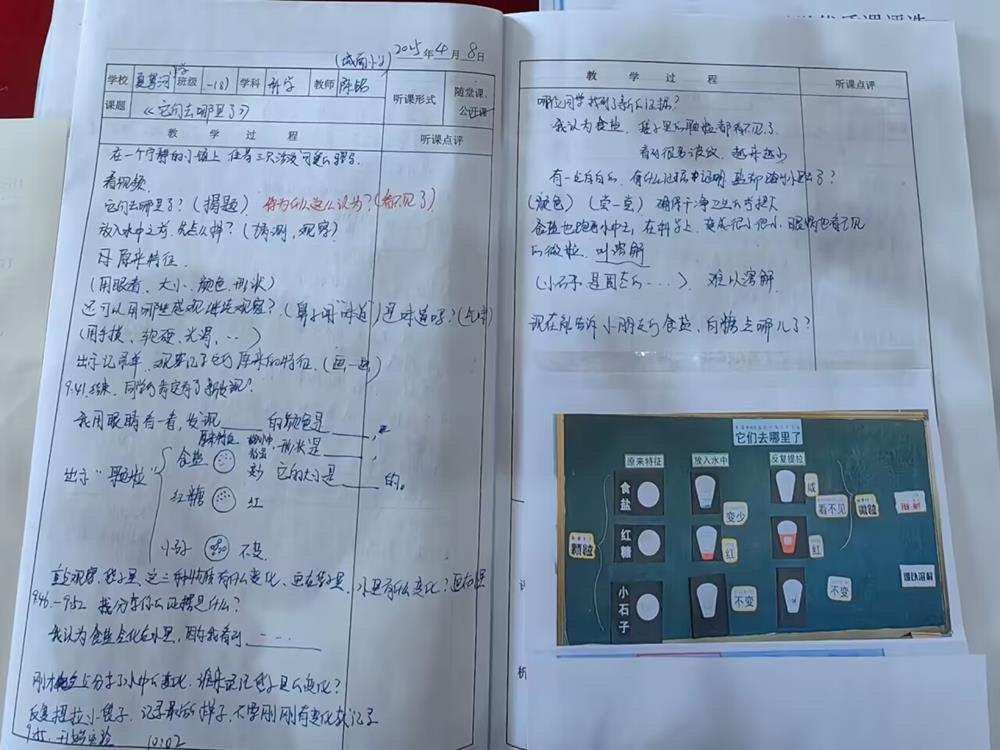 (城南小学) 2025年4月8日
学校 班级 一(8) 学科 科学 教师 陈铭 听课形式 随堂课、公开课
课题 《它们去哪里了》
教 学 过 程 听课点评
在一个宁静的小镇上,住着三只活泼可爱的
看视频.
它们去哪里了?(揭题) 你为什么这么认为?(看不见了)
放入水中之前,先怎么样?(预测,观察)
原来特征.
(用眼看、大小、颜色、形状)
还可以用哪些感观继续观察?(鼻子闻味道)
(用手摸,软硬,光滑,…)
出示记录单,观察记录它们原来的特征.(画一画)
9:41结束,同学们肯定有了新发现?
我用眼睛看一看,发现____的颜色是____,
原来特征 形状是____,
出示“颗粒” 食盐 变少 它的大小是____的。
红糖 红
小石子 不变.
重点观察,袋子里这三种物质有什么变化,画在袋子里,水里有什么变化?
9:46-9:52 我们分享你的证据是什么?
我认为食盐全化在水里,因为我看到……
刚才分享了水中的变化,谁来说说袋子里的变化?
反复提拉小袋子,记录最后的样子,不要刚刚有变化就记录
开始实验 10:02
教 学 过 程 听课点评
哪位同学找到了新的证据?
我认为食盐,袋子里的颗粒都看不见了.
看到很多波纹,越来越少
有一点白白的,有什么证据证明盐都跑水里去了?
(颜色)(尝一尝)确保干净卫生
食盐也跑到水中去,在水里,变成很小很小,眼睛也看不见
的微粒,叫溶解
(小石子是固态的…)难以溶解
现在能告诉小朋友们食盐,白糖去哪儿了?
它们去哪里了
原来特征 放入水中 反复提拉
食盐 变少 咸 看不见
颗粒 红糖 红 红 微粒 溶解
小石子 不变 不变 难以溶解